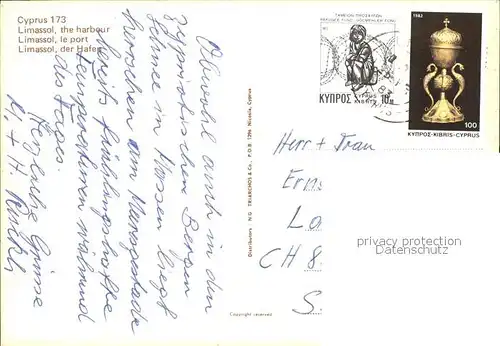 Cyprus 173
Limassol, the harbour
Limassol, le port
Limassol, der Hafen
Obwohl auch in den
zypriotischen Bergen
Schnee in Massen liegt
herrschen am Meeresgestade
bereits frühlingshafte
Temperaturen während
des Tages.
Herzliche Grüsse
H.
Distributors : N.G. TRIARCHOS & Co., P.O.B. 1296 Nicosia, Cyprus
Copyright reserved
ΚΥΠΡΟΣ
CYPRUS
KIBRIS
10M
1982
100
ΚΥΠΡΟΣ-KIBRIS-CYPRUS
Herr + Frau
CH 8
S
privacy protection
veikkos.com